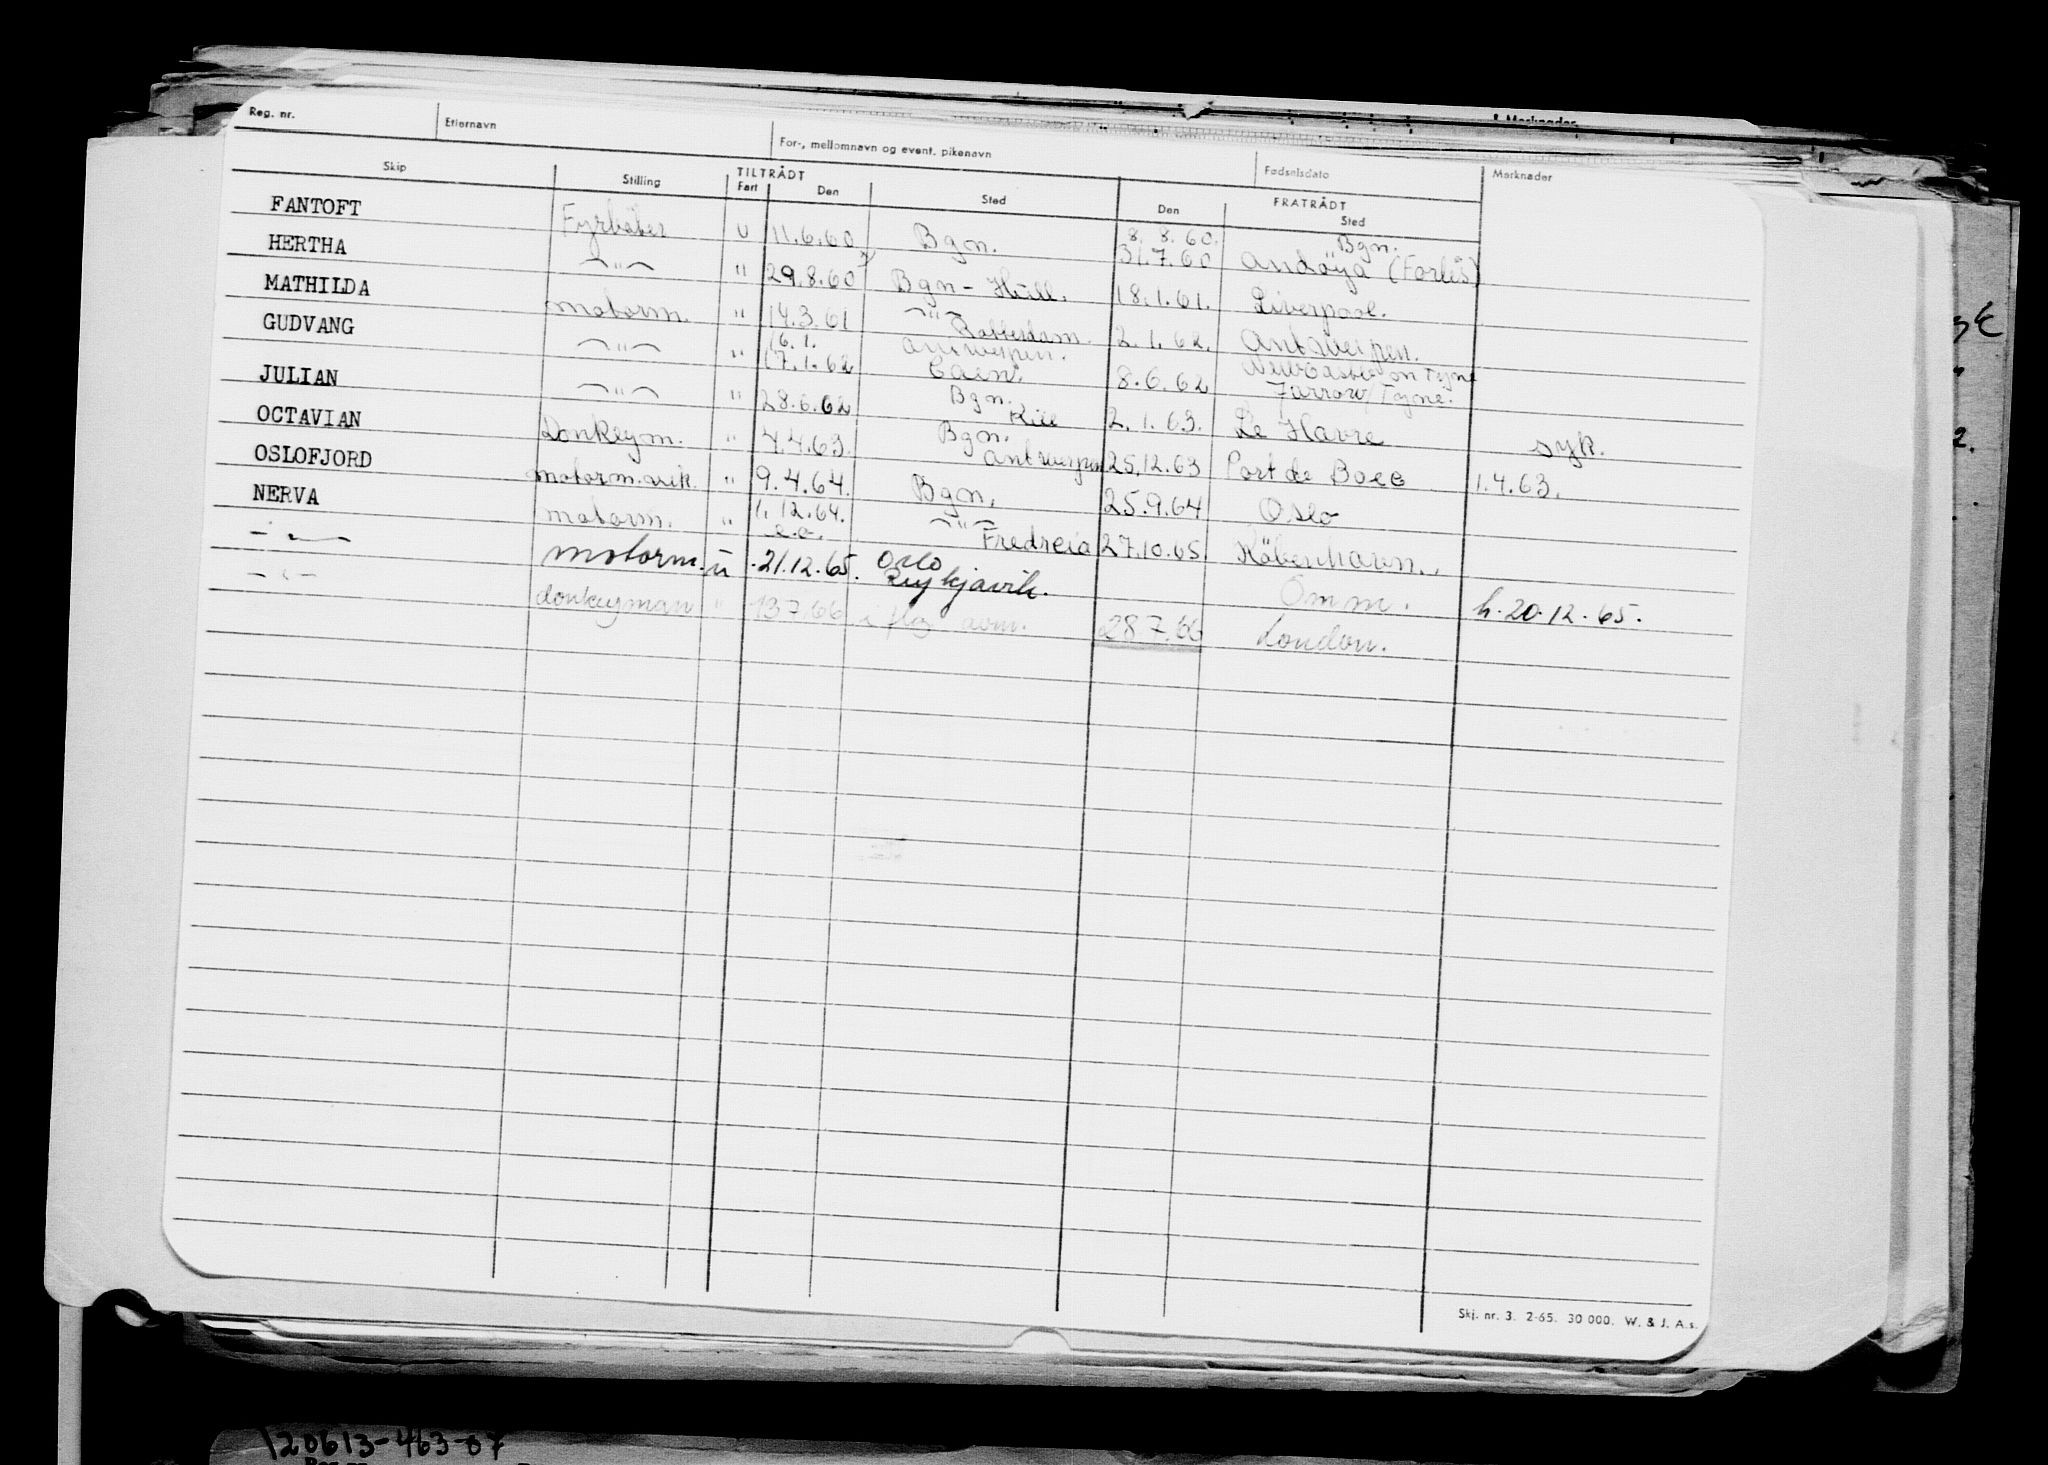 Merknader
Reg. nr. Etternavn For-, mellomnavn og event. pikenavn Fødselsdato Merknader
Skip Stilling TILTRÅDT Fart Den Sted Den FRATRÅDT Sted
FANTOFT Fyrbøter U 11.6.60 Bgn. 8. 8. 60. Bgn.
31.7.60 Andøya (Forlis)
HERTHA -"- " 29.8.60 Bgn - Hull. 18.1.61. Liverpool.
MATHILDA motorm. " 14.3.61 -"- Rotterdam. 2.1.62. Antwerpen.
GUDVANG -"- " 6.1. Antwerpen. Newcastle on Tyne
17.1.62 Caen. 8.6.62 Jarrow/Tyne.
JULIAN -"- " 28.6.62 Bgn. Kiel 2.1.63. Le Havre syk.
OCTAVIAN Donkeym. " 4.4.63. Bgn. Antwerpen 25.12.63 Port de Bouc 1.4.63.
OSLOFJORD motorm.vik. " 9.4.64. Bgn. 25.9.64 Oslo
NERVA motorm. " 1.12.64. e.o. -"- Fredrecia 27.10.65. København.
-"- motorm. u 21.12.65. Oslo Reykjavik. Omm. h. 20.12.65.
-"- donkeyman " 13.7.66 i flg avm. 28.7.66 London.
Skj. nr. 3. 2-65. 30 000. W. & J. A.s.
120613-463-07